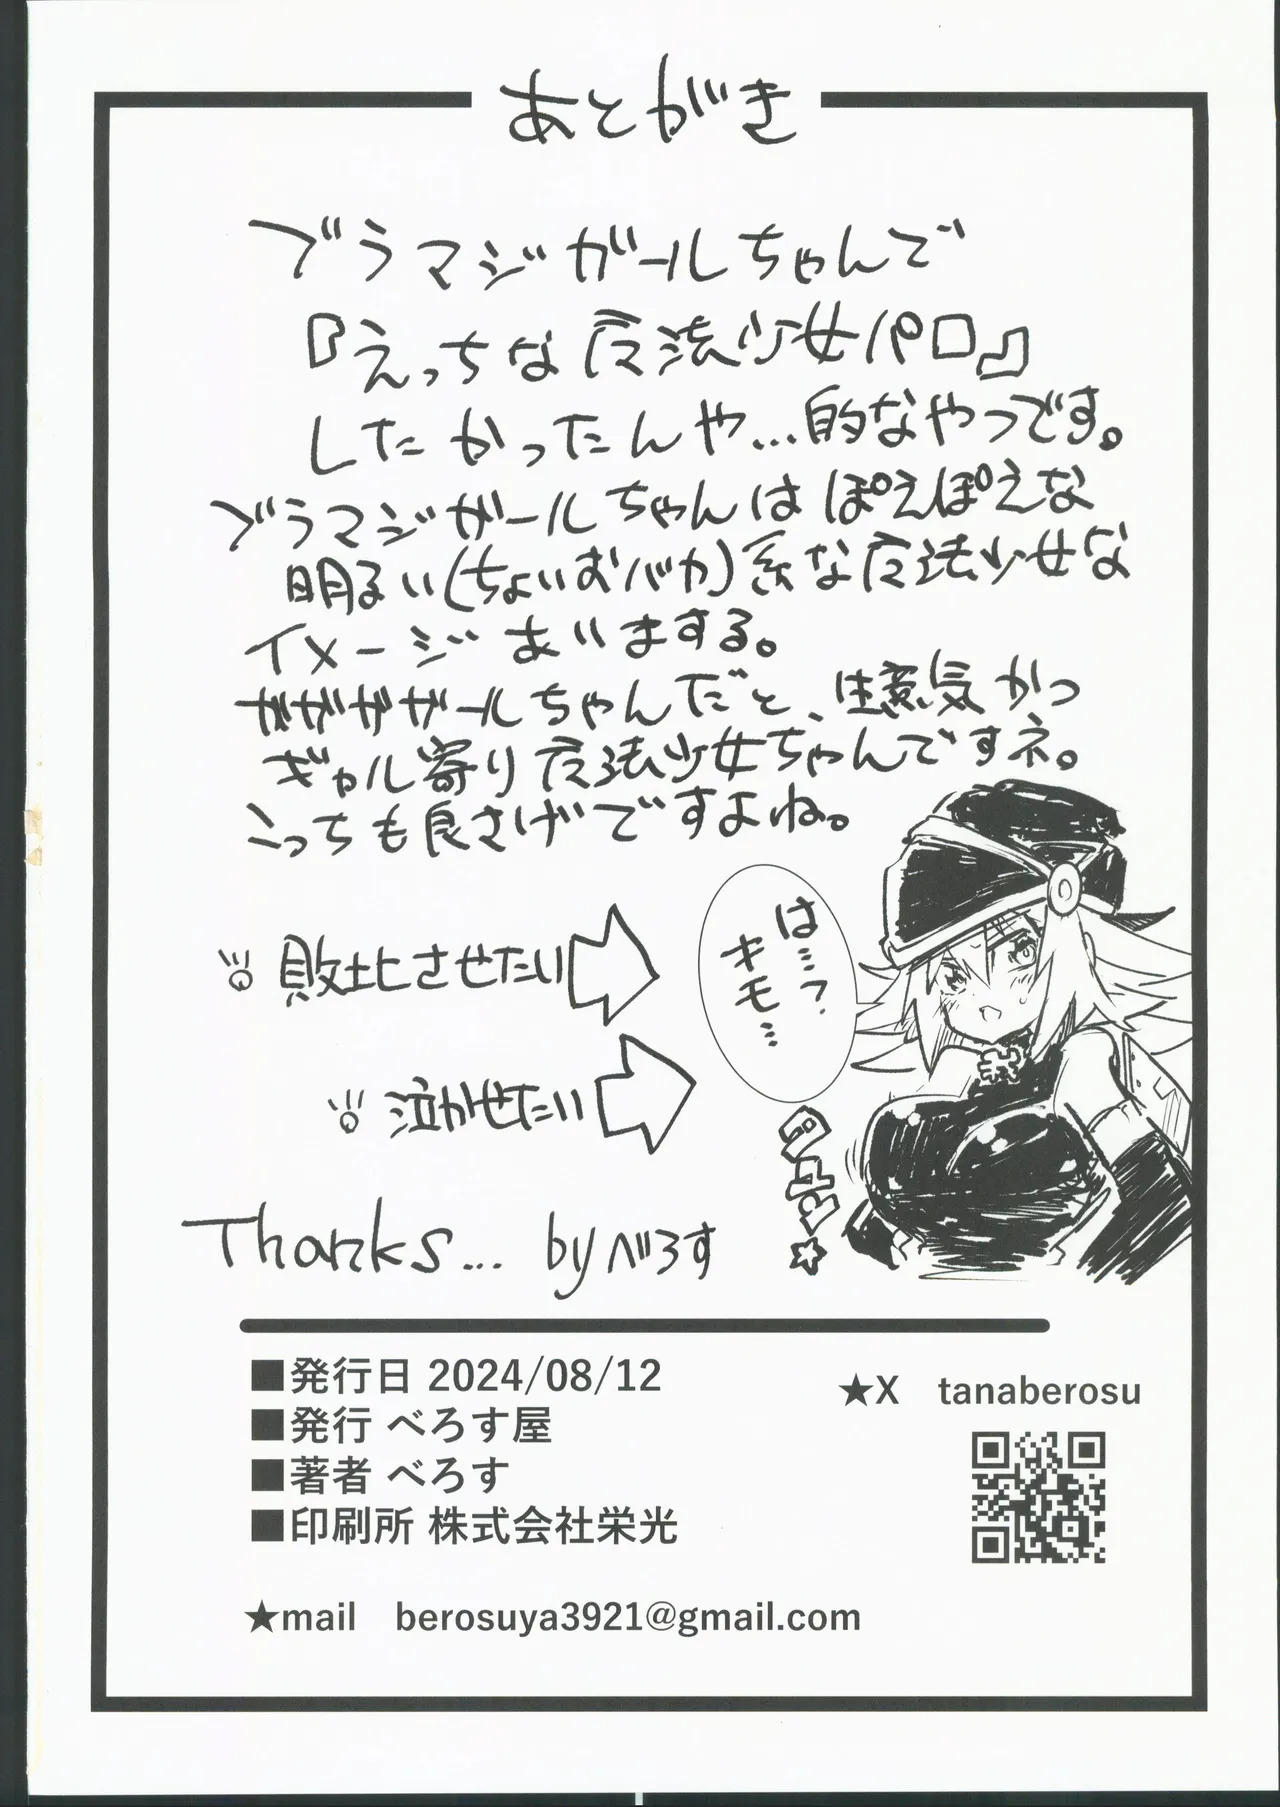 あとがき
ブラマジガールちゃんで
『えっちな魔法少女パロ』
したかったんや…的なやつです。
ブラマジガールちゃんは ぽえぽえな
明るい(ちょいおバカ)系な魔法少女な
イメージあいまする。
ガガガガールちゃんだと、生意気かつ
ギャル寄り魔法少女ちゃんですネ。
こっちも良さげですよね。
敗北させたい
は…？
キモ…
泣かせたい
Thanks... by べろす
■発行日 2024/08/12
■発行 べろす屋
■著者 べろす
■印刷所 株式会社栄光
★X tanaberosu
★mail berosuya3921@gmail.com